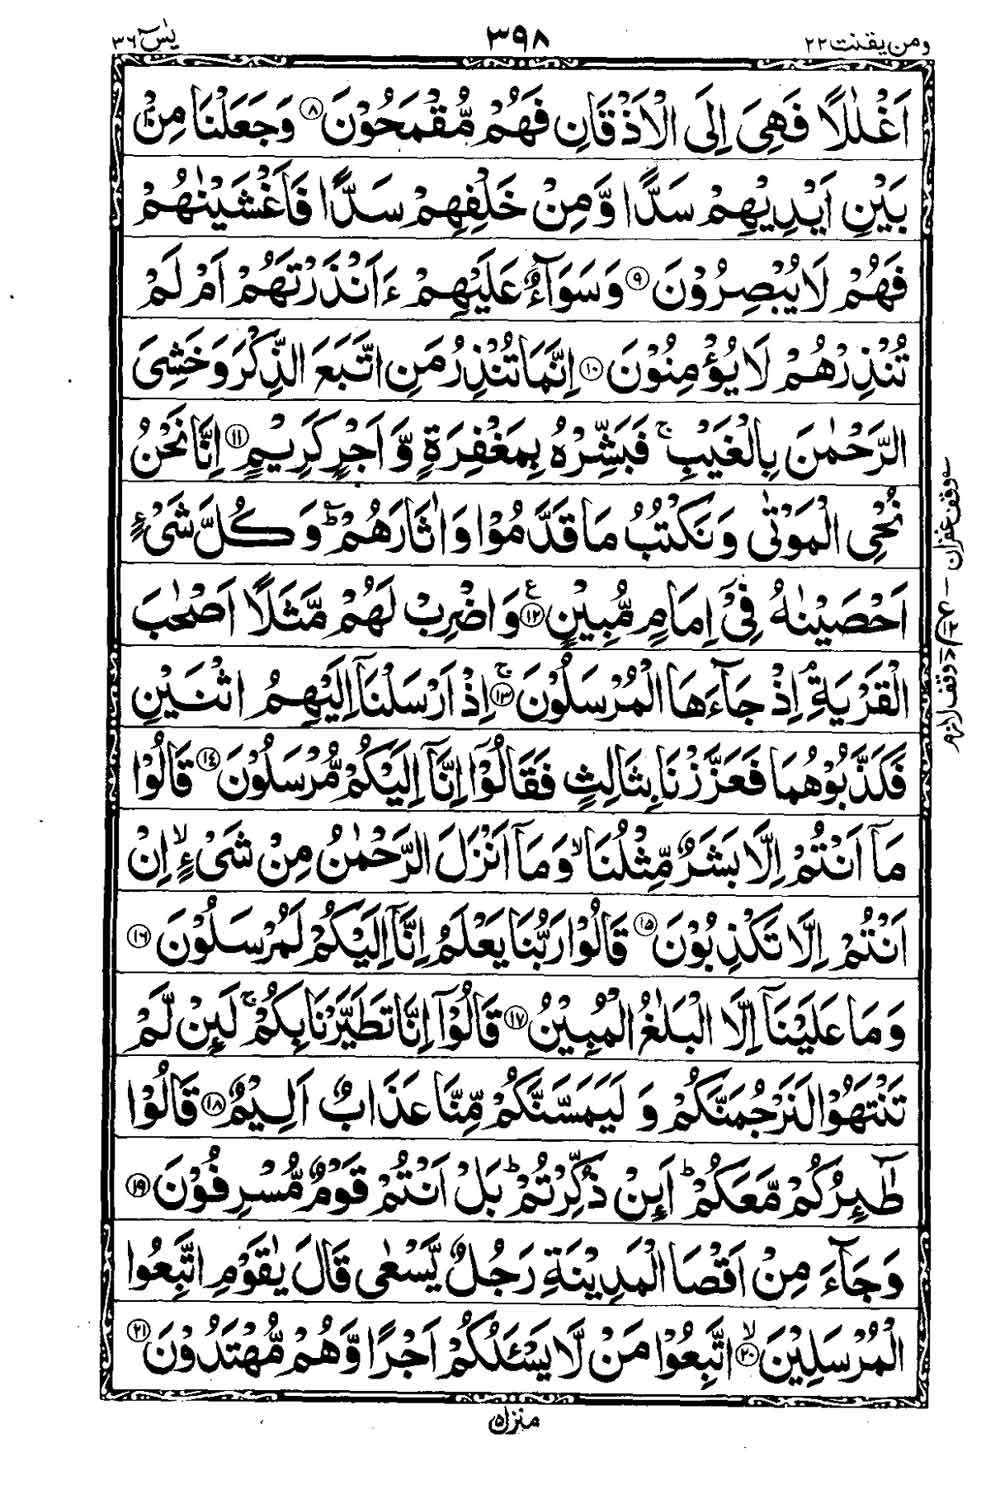 ومن يقنت ٢٢ ٣٩٨ يٰسٓ ٣٦
اَغْلٰلًا فَهِىَ اِلَى الْاَذْقَانِ فَهُمْ مُّقْمَحُوْنَ ۝٨ وَجَعَلْنَا مِنْۢ
بَيْنِ اَيْدِيْهِمْ سَدًّا وَّمِنْ خَلْفِهِمْ سَدًّا فَاَغْشَيْنٰهُمْ
فَهُمْ لَا يُبْصِرُوْنَ ۝٩ وَسَوَآءٌ عَلَيْهِمْ ءَاَنْذَرْتَهُمْ اَمْ لَمْ
تُنْذِرْهُمْ لَا يُؤْمِنُوْنَ ۝١٠ اِنَّمَا تُنْذِرُ مَنِ اتَّبَعَ الذِّكْرَ وَخَشِىَ
الرَّحْمٰنَ بِالْغَيْبِ ۚ فَبَشِّرْهُ بِمَغْفِرَةٍ وَّاَجْرٍ كَرِيْمٍ ۝١١ اِنَّا نَحْنُ
نُحْىِ الْمَوْتٰى وَنَكْتُبُ مَا قَدَّمُوْا وَاٰثَارَهُمْ ۚؕ وَكُلَّ شَىْءٍ
اَحْصَيْنٰهُ فِىْٓ اِمَامٍ مُّبِيْنٍ ۝١٢ ع وَاضْرِبْ لَهُمْ مَّثَلًا اَصْحٰبَ
الْقَرْيَةِ ۘ اِذْ جَآءَهَا الْمُرْسَلُوْنَ ۝١٣ ۚ اِذْ اَرْسَلْنَآ اِلَيْهِمُ اثْنَيْنِ
فَكَذَّبُوْهُمَا فَعَزَّزْنَا بِثَالِثٍ فَقَالُوْٓا اِنَّآ اِلَيْكُمْ مُّرْسَلُوْنَ ۝١٤ قَالُوْا
مَآ اَنْتُمْ اِلَّا بَشَرٌ مِّثْلُنَا ۙ وَمَآ اَنْزَلَ الرَّحْمٰنُ مِنْ شَىْءٍ ۙ اِنْ
اَنْتُمْ اِلَّا تَكْذِبُوْنَ ۝١٥ قَالُوْا رَبُّنَا يَعْلَمُ اِنَّآ اِلَيْكُمْ لَمُرْسَلُوْنَ ۝١٦
وَمَا عَلَيْنَآ اِلَّا الْبَلٰغُ الْمُبِيْنُ ۝١٧ قَالُوْٓا اِنَّا تَطَيَّرْنَا بِكُمْ ۚ لَئِنْ لَّمْ
تَنْتَهُوْا لَنَرْجُمَنَّكُمْ وَلَيَمَسَّنَّكُمْ مِّنَّا عَذَابٌ اَلِيْمٌ ۝١٨ قَالُوْا
طَآئِرُكُمْ مَّعَكُمْ ؕ اَئِنْ ذُكِّرْتُمْ ؕ بَلْ اَنْتُمْ قَوْمٌ مُّسْرِفُوْنَ ۝١٩
وَجَآءَ مِنْ اَقْصَا الْمَدِيْنَةِ رَجُلٌ يَّسْعٰى قَالَ يٰقَوْمِ اتَّبِعُوا
الْمُرْسَلِيْنَ ۝٢٠ ۙ اتَّبِعُوْا مَنْ لَّا يَسْـَٔلُكُمْ اَجْرًا وَّهُمْ مُّهْتَدُوْنَ ۝٢١
وقف غفران
وقف لازم
منزل ٥